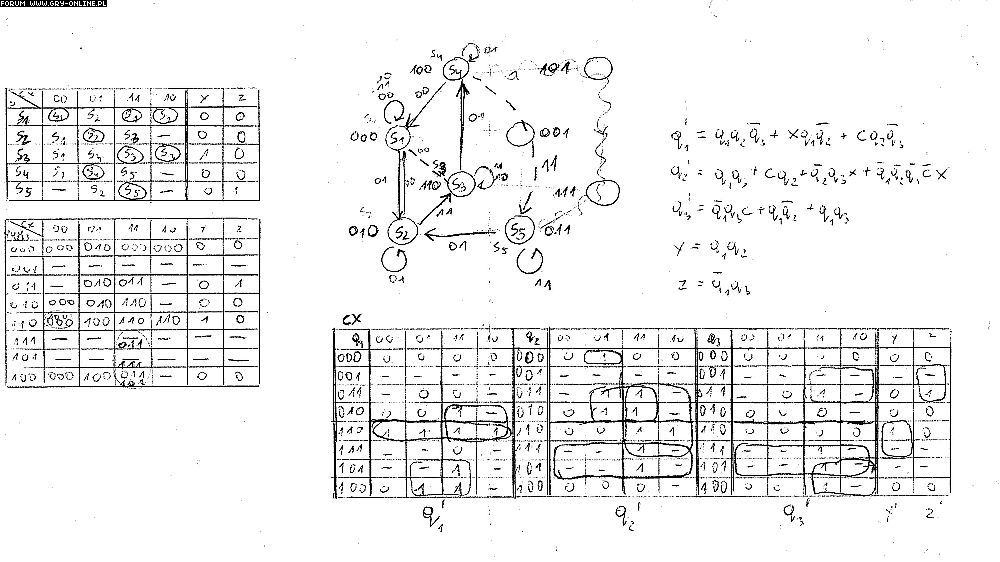 FORUM WWW.GRY-ONLINE.PL
00 01 11 10 Y Z
S1 S1 S2 S1 S1 0 0
S2 S1 S2 S3 — 0 0
S3 S1 S4 S3 S3 1 0
S4 S1 S4 S5 — 0 0
S5 — S2 S5 — 0 1
00 01 11 10 Y Z
000 000 010 000 000 0 0
001 — — — — — —
011 — 010 011 — 0 1
010 000 010 110 — 0 0
110 000 100 110 110 1 0
111 — — 011 — — —
101 — — 111 — — —
100 000 100 — 0 0
S4 01
100 S4 101
00 00
000 S1 001
01 00 110 S3 11
11 111
010 S2 01 S5 011
S5
01 11
q1' = q1q2q̄3 + xq1q̄2 + cq2q̄3
q2' = q1q3 + cq2 + q̄2q3x + q̄1q̄2q̄3c̄x
q3' = q̄1q3c + q1q̄2 + q1q3
Y = q1q2
Z = q̄1q3
CX
Q1 00 01 11 10 Q2 00 01 11 10 Q3 00 01 11 10 Y Z
000 0 0 0 0 000 0 1 0 0 000 0 0 0 0 0 0
001 — — — — 001 — — — — 001 — — — — — —
011 — 0 0 — 011 — 1 1 — 011 — 0 1 — 0 1
010 0 0 1 — 010 0 1 1 — 010 0 0 0 — 0 0
110 1 1 1 1 110 0 0 1 1 110 0 0 0 0 1 0
111 — — 0 — 111 — — 1 — 111 — — 1 — — —
101 — — 1 — 101 — — 1 — 101 — — 1 — — —
100 0 1 1 — 100 0 0 0 — 100 0 0 1 — 0 0
q1' q2' q3' Y' Z'